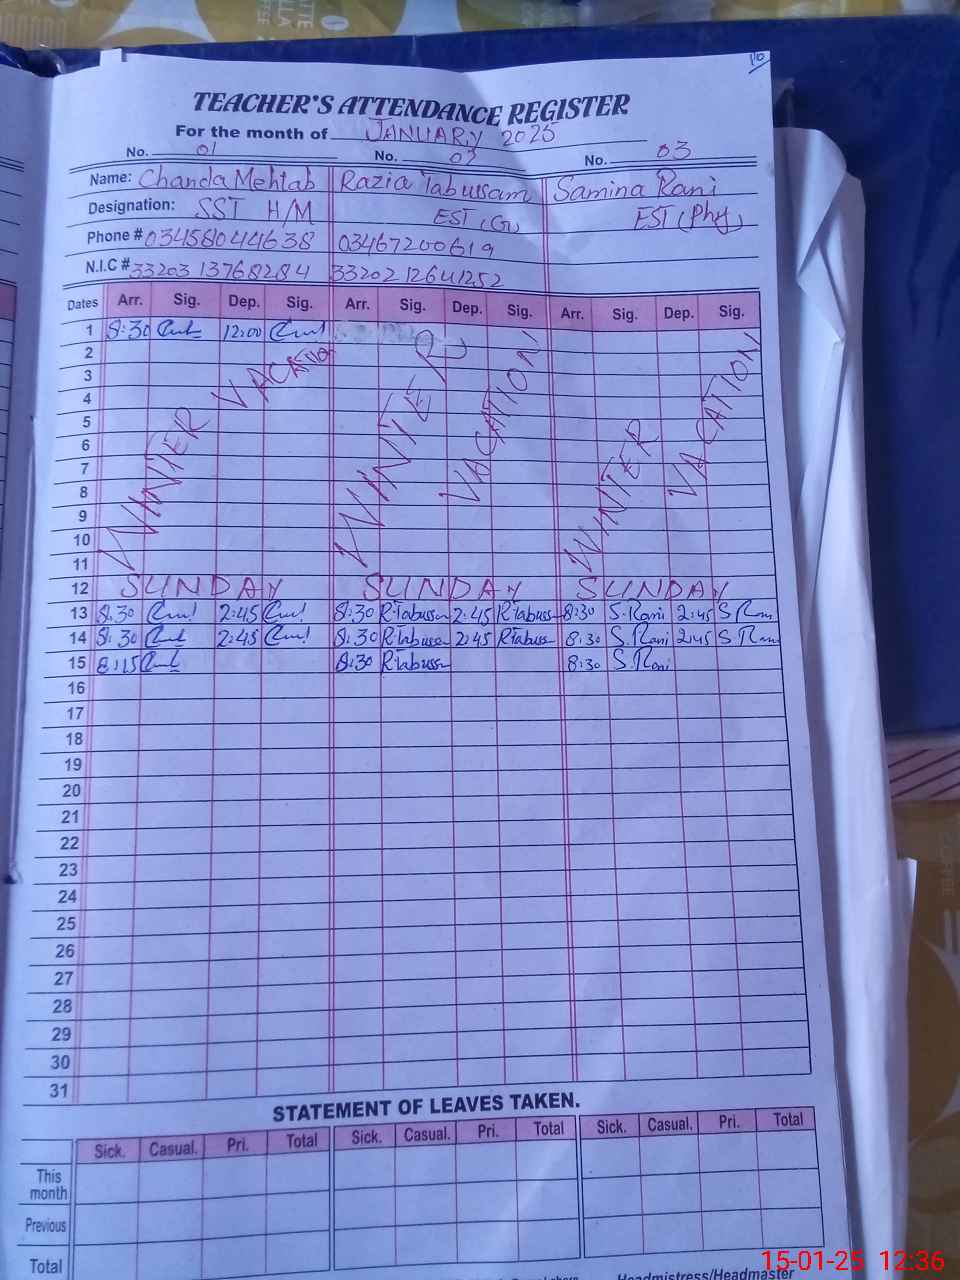 TEACHER'S ATTENDANCE REGISTER
For the month of JANUARY 2025
No. 01 No. 02 No. 03
Name: Chanda Mehtab Razia Tabussam Samina Rani
Designation: SST H/M EST (G) EST (Phy)
Phone # 03458044638 03467200619
N.I.C # 33203 13768284 33202 12641252
Dates Arr. Sig. Dep. Sig. Arr. Sig. Dep. Sig. Arr. Sig. Dep. Sig.
1 8:30 12:00
2
3
4
5
6
7
8
9
10
11
WINTER VACATION WINTER VACATION WINTER VACATION
12 SUNDAY SUNDAY SUNDAY
13 8:30 2:45 8:30 R.Tabussm 2:45 R.Tabuss 8:30 S.Rani 2:45 S Rani
14 8:30 2:45 8:30 R.Tabusse 2:45 R.Tabuss 8:30 S.Rani 2:45 S Rani
15 8:15 8:30 R.Tabussm 8:30 S.Rani
16
17
18
19
20
21
22
23
24
25
26
27
28
29
30
31
STATEMENT OF LEAVES TAKEN.
Sick. Casual. Pri. Total Sick. Casual. Pri. Total Sick. Casual. Pri. Total
This month
Previous
Total
Headmistress/Headmaster
15-01-25 12:36